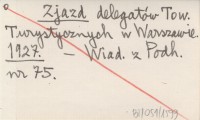 Zjazd delegatów Tow.
Turystycznych w Warszawie.
1927. – Wiad. z Podh.
nr 75.